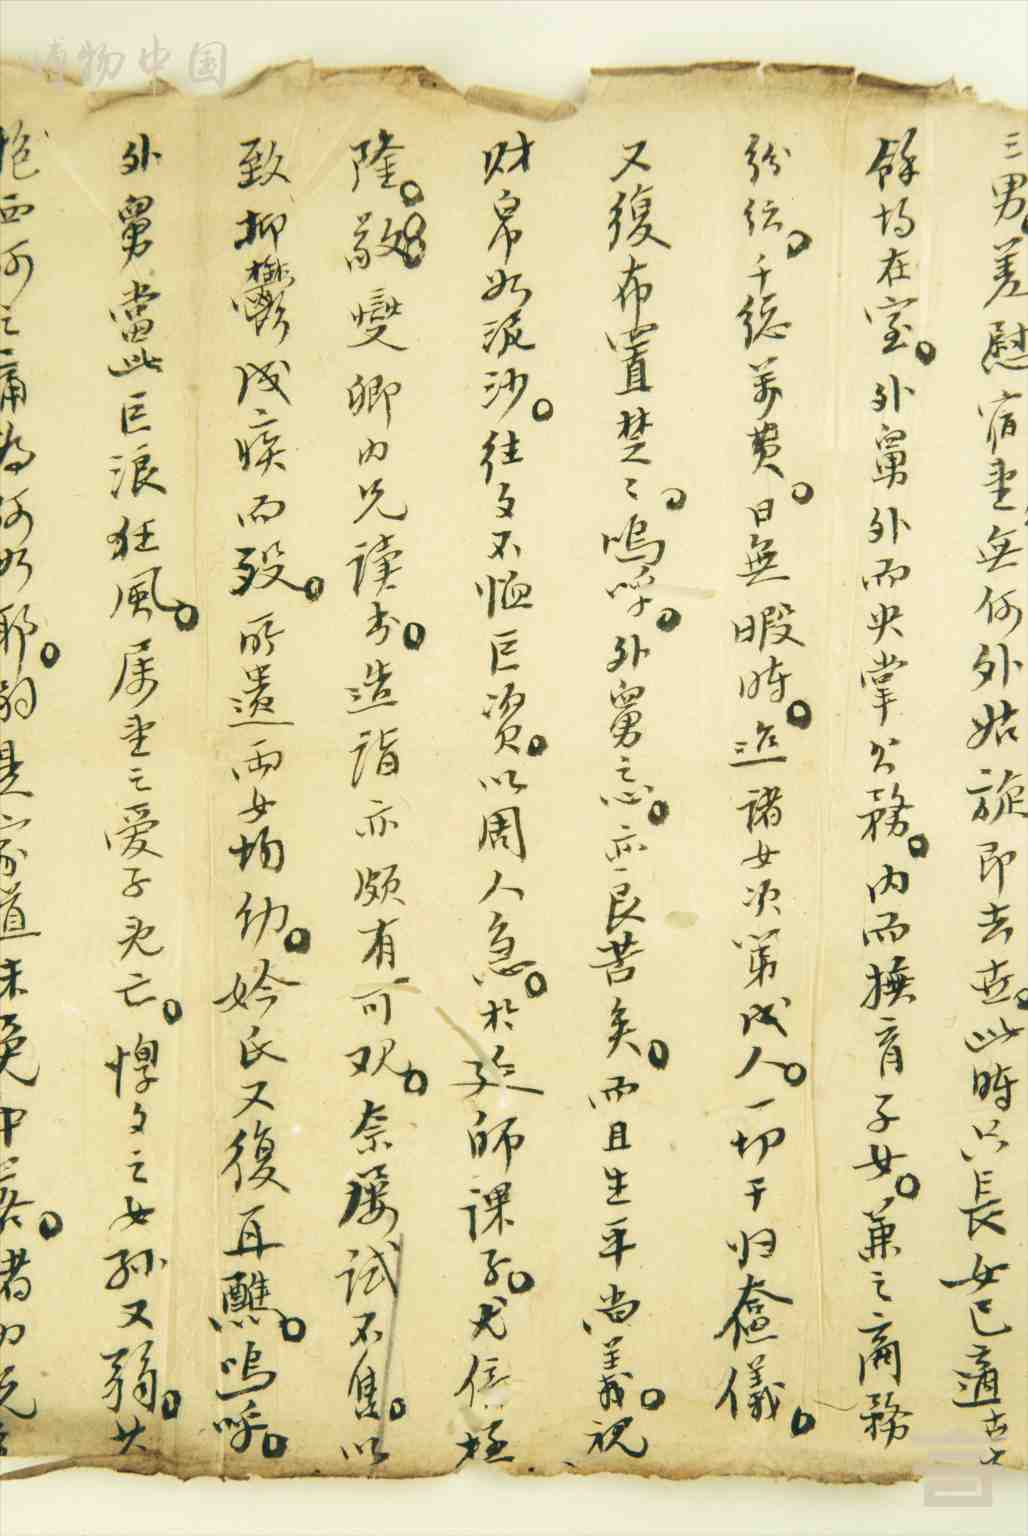 三男。差慰宿重無何外姑旋即去世。此時只長女已適古
餘均在室。外舅外而央掌公務。内而撫育子女。兼之商務
紛紜。千緒萬費。日無暇時。迨諸女次第成人。一切于归奩儀。
又復布置楚〻。嗚呼。外舅之心。亦良苦矣。而且生平尚義。視
财帛如泥沙。往〻不恤巨资。以周人急。於延師課子。尤信
隆。故燮卿内兄读书。造詣亦颇有可观。奈屡試不售。以
致抑鬱成疾而殁。所遺两女均幼。妗氏又復再醮。嗚呼。
外舅當此巨浪狂風。属重之爱子既亡。惸〻之女孙又弱。其
抱西河之痛為何如耶。是家道未免中落。者
博物中国